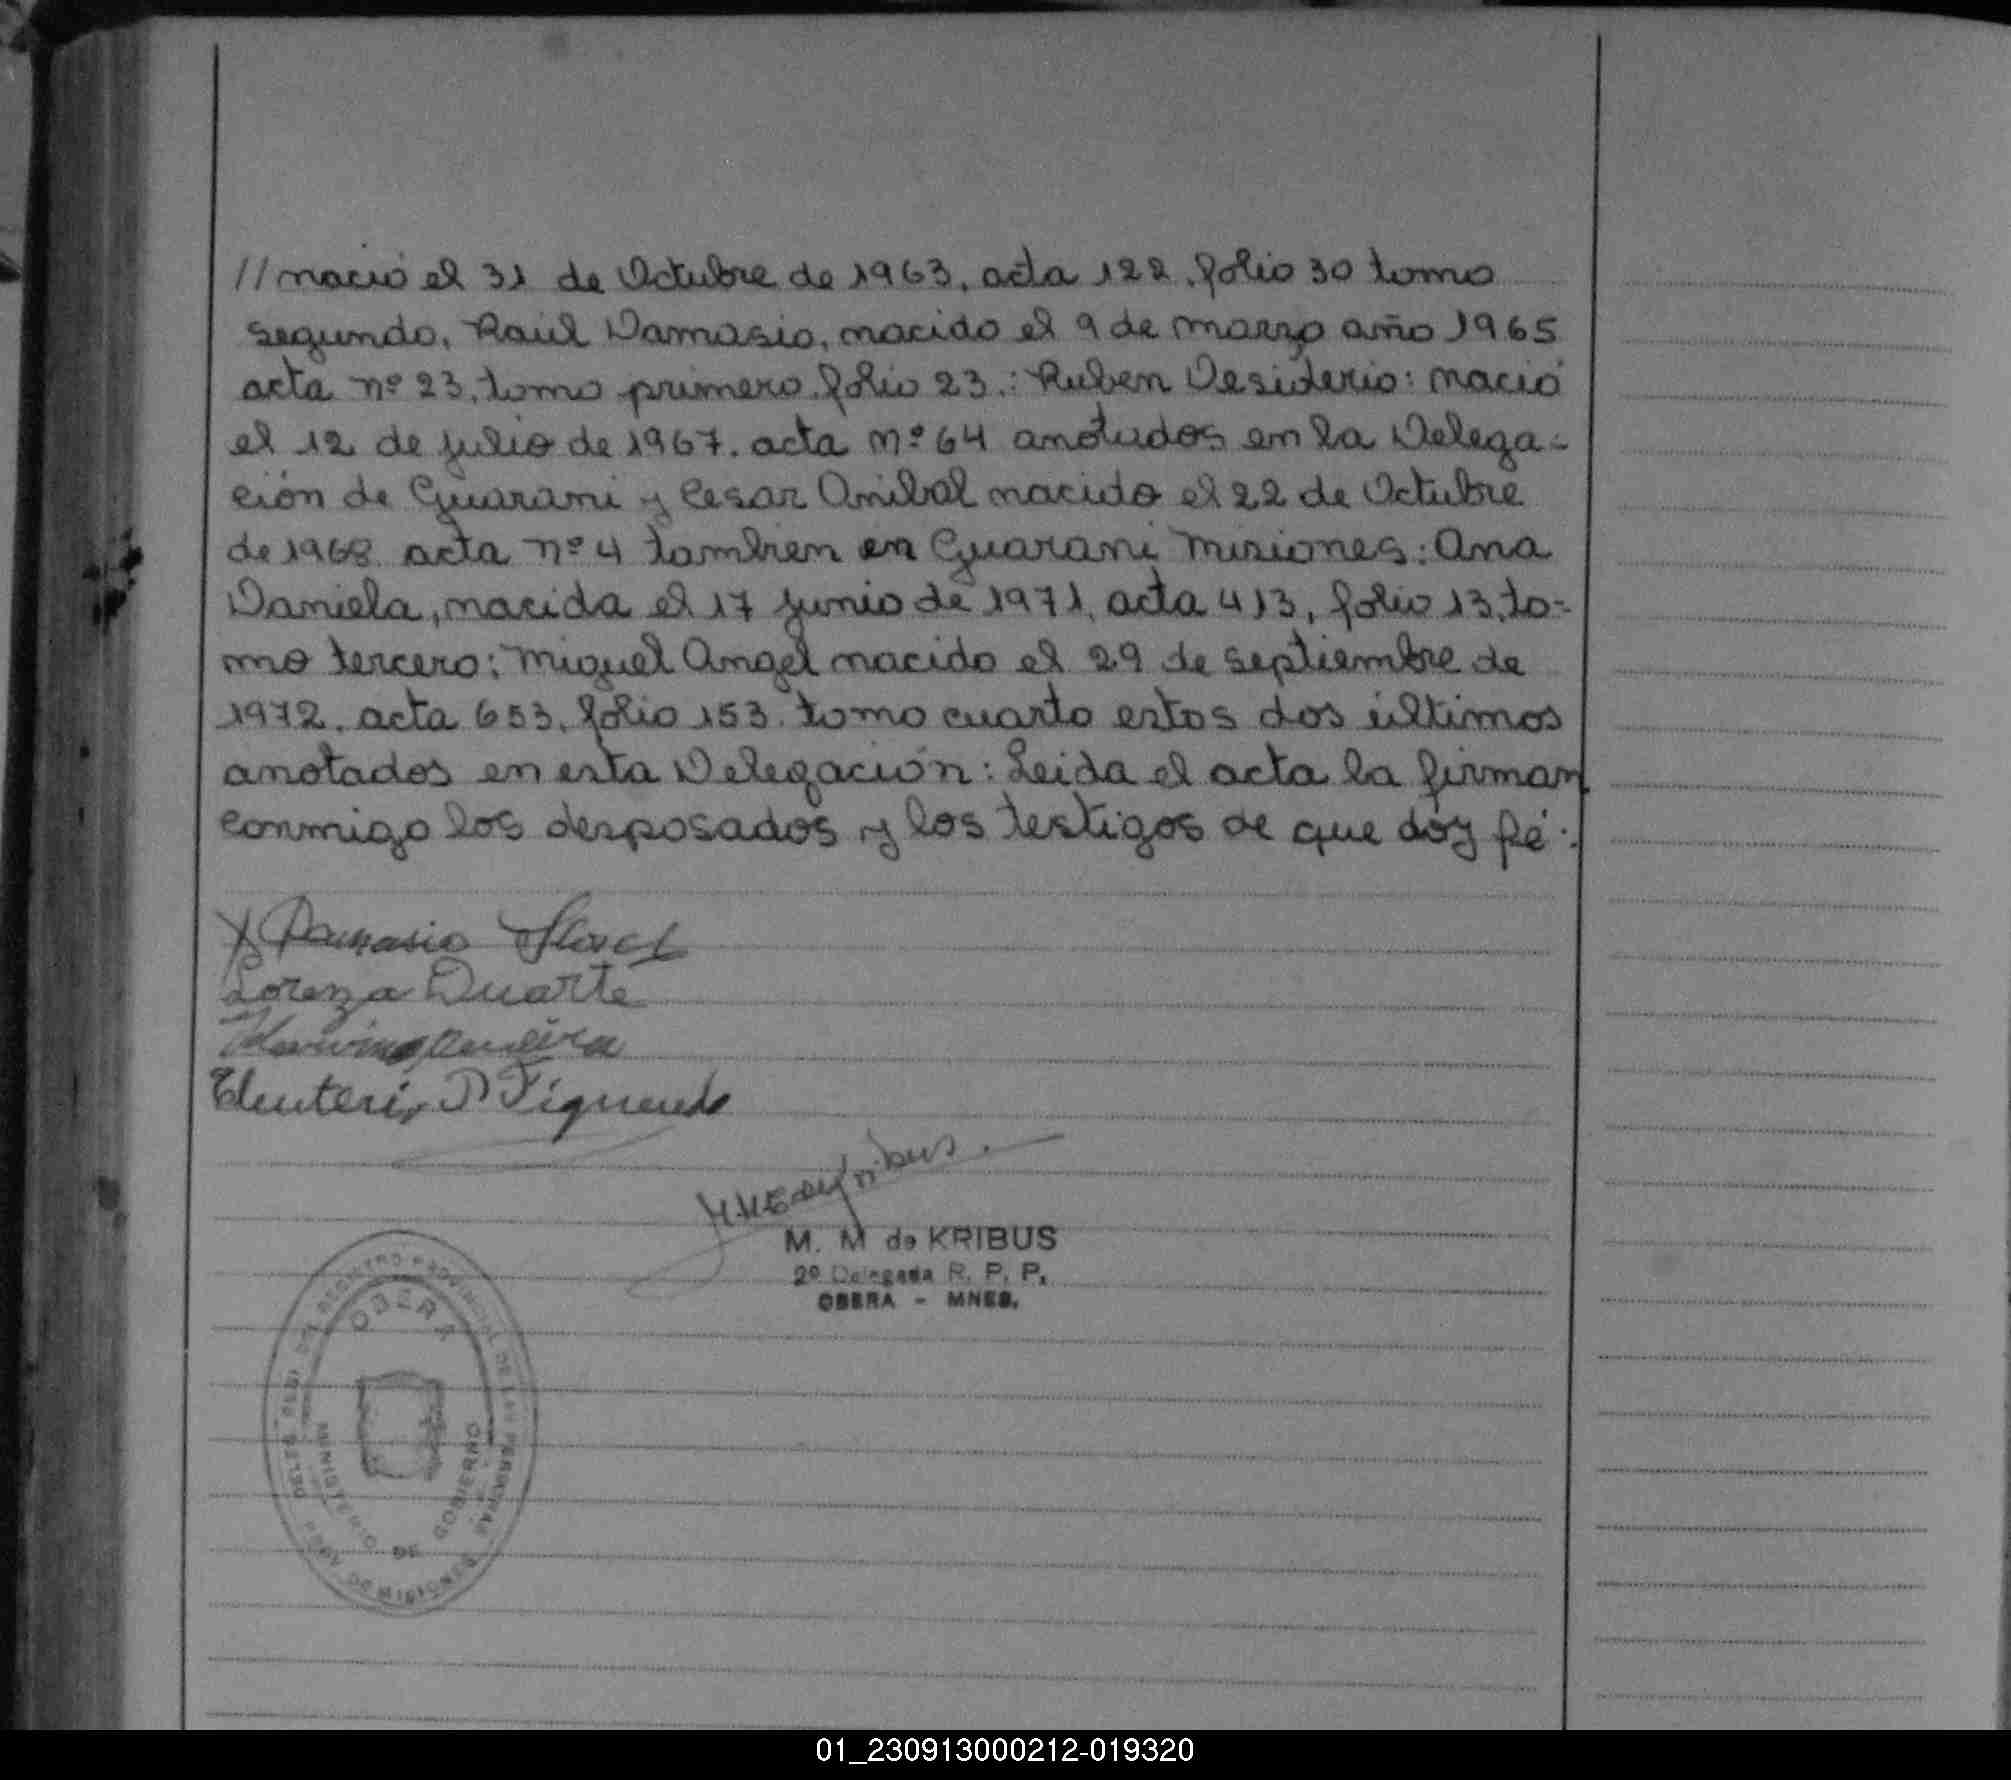 //nació el 31 de Octubre de 1963, acta 122, folio 30 tomo
segundo, Raúl Damasio, nacido el 9 de marzo año 1965
acta nº 23, tomo primero, folio 23.: Ruben Desiderio: nació
el 12 de julio de 1967. acta nº 64 anotados en la Delega=
ción de Guarani y Cesar Anibal nacido el 22 de Octubre
de 1968 acta nº 4 tambien en Guarani Misiones: Ana
Daniela, nacida el 17 junio de 1971, acta 413, folio 13, to=
mo tercero: Miguel Angel nacido el 29 de septiembre de
1972, acta 653, folio 153. tomo cuarto estos dos últimos
anotados en esta Delegación: Leida el acta la firman
conmigo los desposados y los testigos de que doy fé:
X Damasio Flores
Lorenza Duarte
Eleuterio P Figueredo
M. M de KRIBUS
2º Delegada R. P. P.
OBERA - MNES.
OBERA
MINISTERIO DE GOBIERNO
01_230913000212-019320